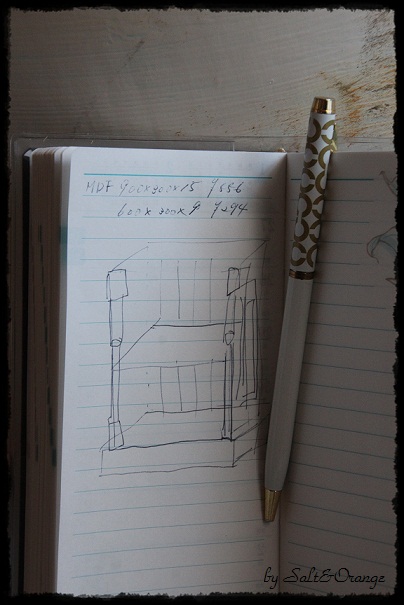 MDF 900x300x15 ¥556
600x300x9 ¥294
by Salt&Orange